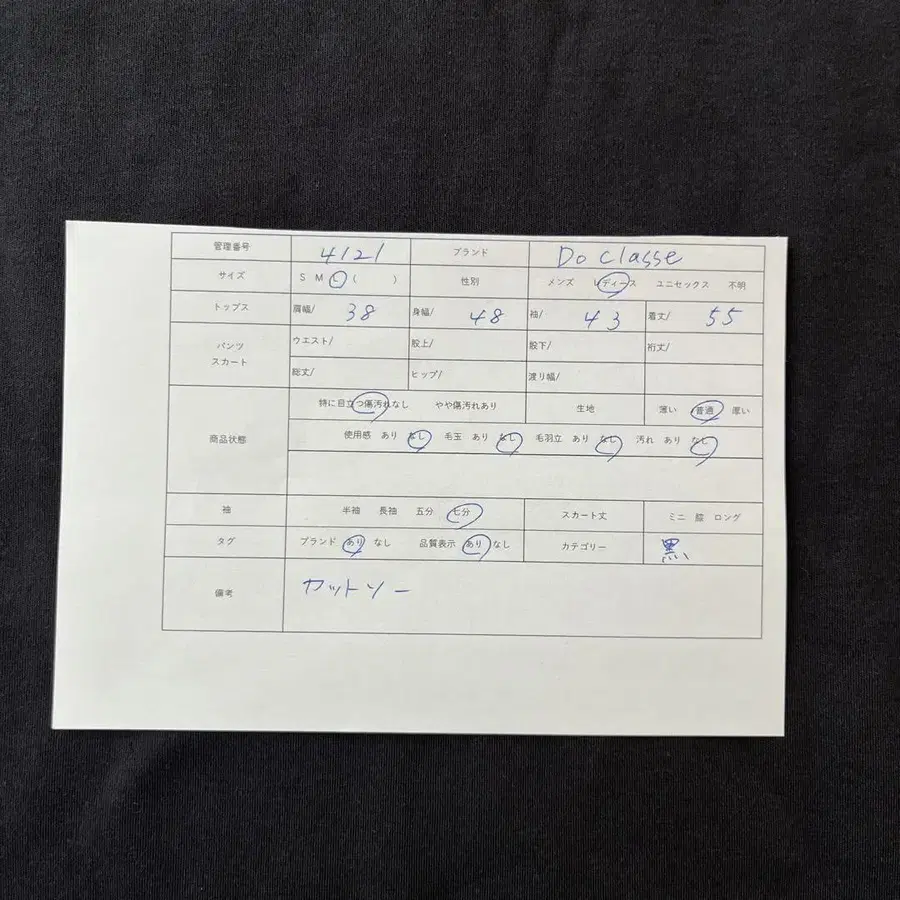 管理番号 4121 ブランド Do classe
サイズ S M L ( ) 性別 メンズ レディース ユニセックス 不明
トップス 肩幅/ 38 身幅/ 48 袖/ 43 着丈/ 55
パンツ スカート ウエスト/ 股上/ 股下/ 裄丈/
総丈/ ヒップ/ 渡り幅/
商品状態 特に目立つ傷汚れなし やや傷汚れあり 生地 薄い 普通 厚い
使用感 あり なし 毛玉 あり なし 毛羽立 あり なし 汚れ あり なし
袖 半袖 長袖 五分 七分 スカート丈 ミニ 膝 ロング
タグ ブランド あり なし 品質表示 あり なし カテゴリー 黒
備考 カットソー